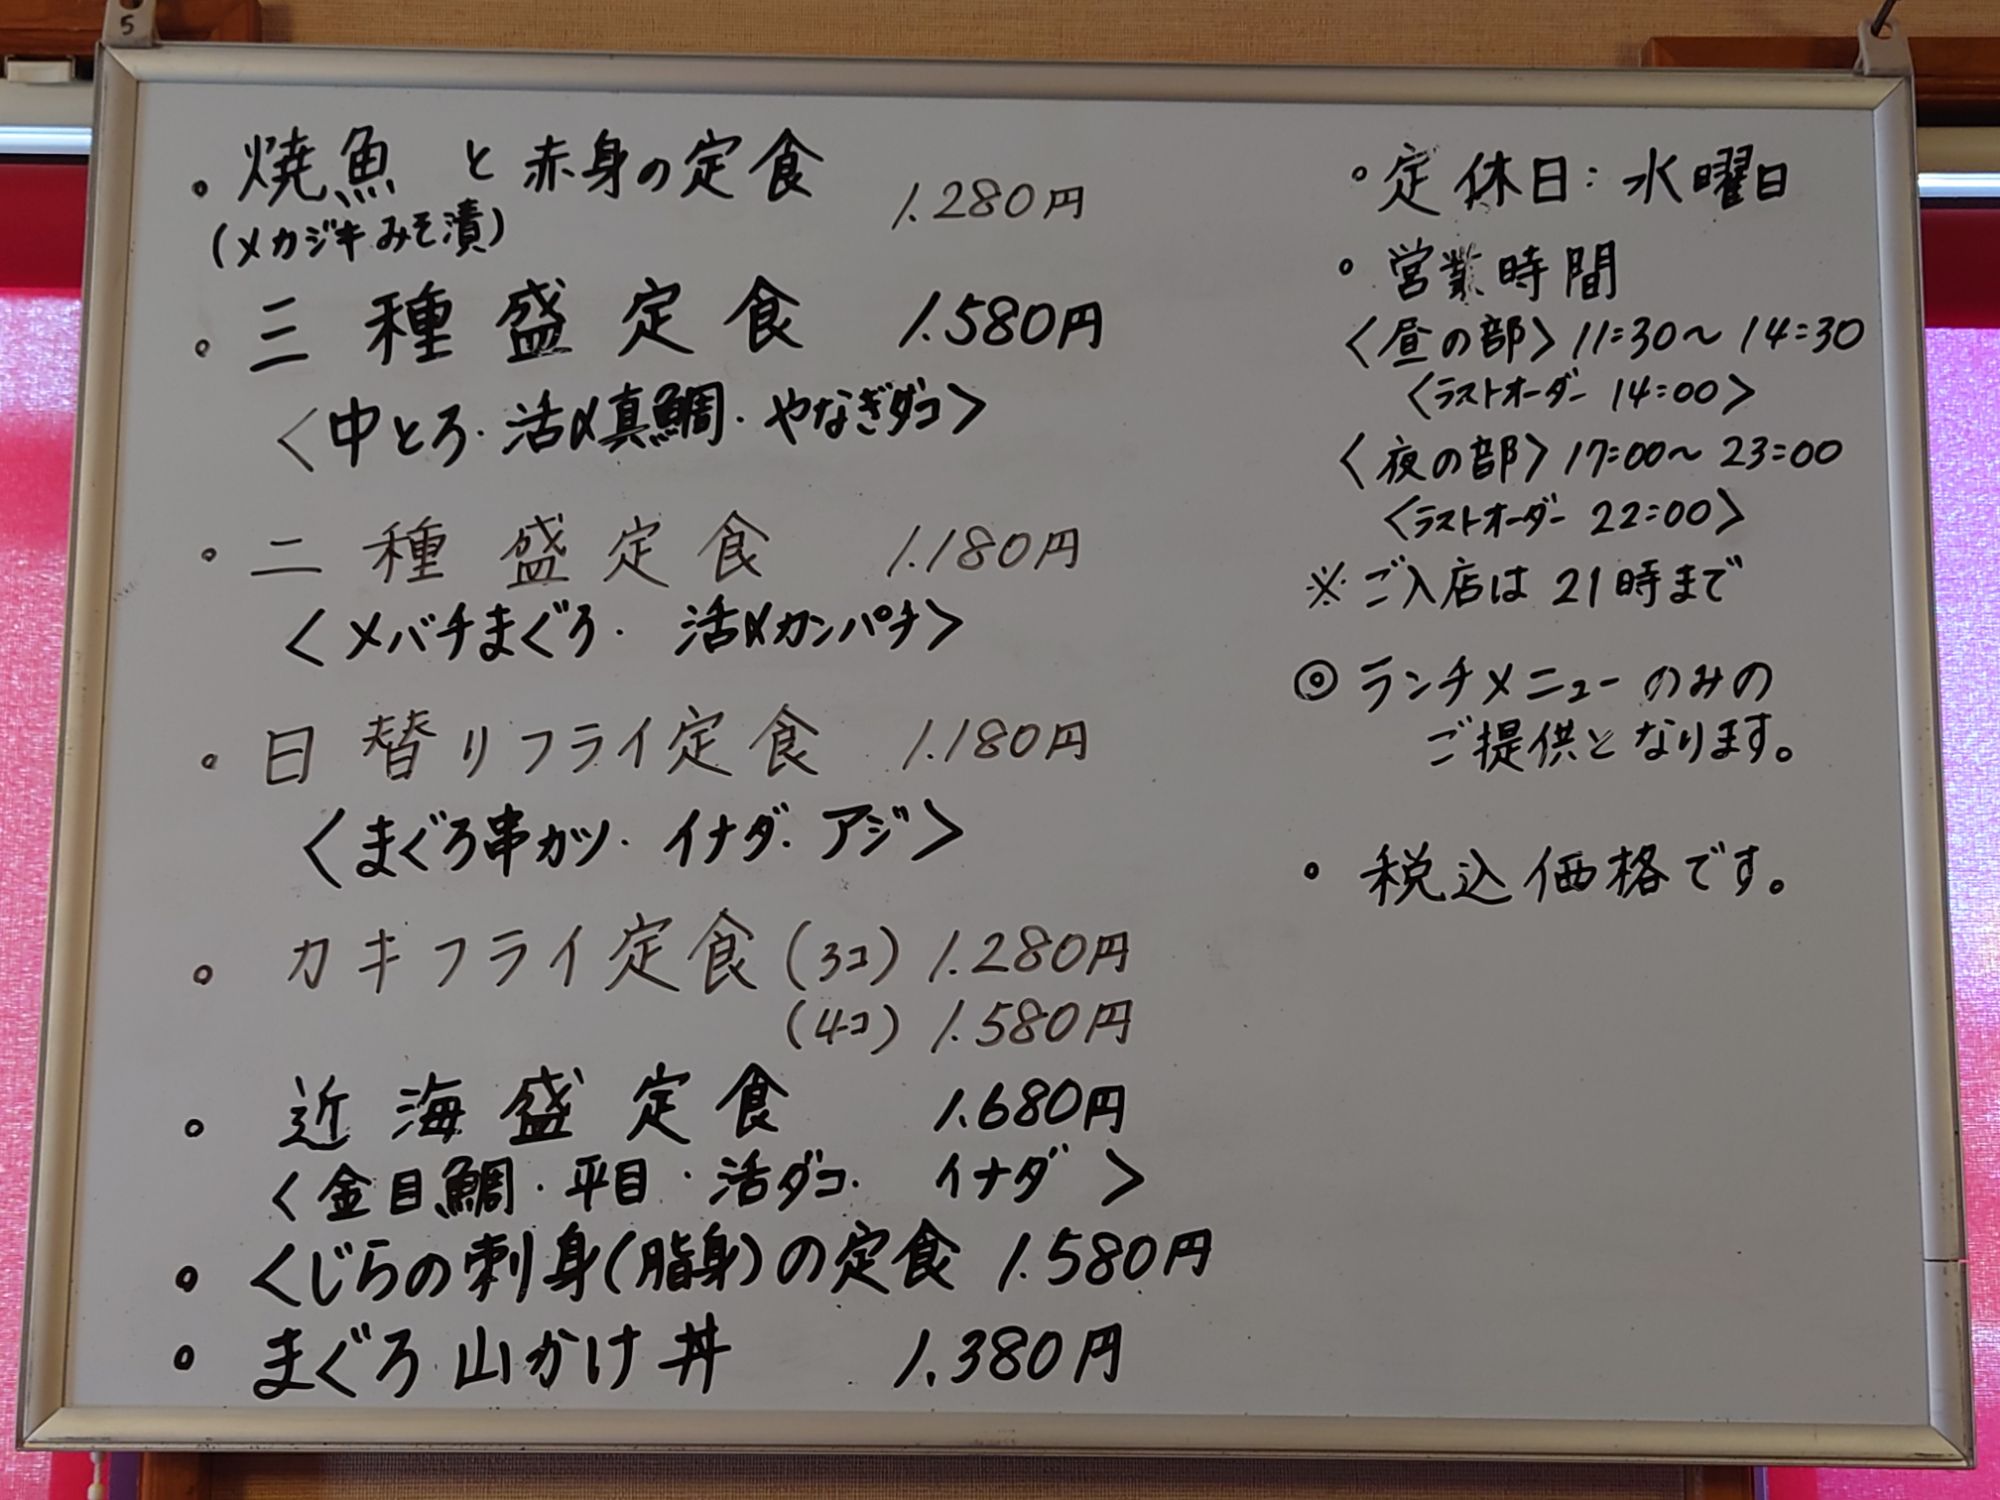 5
・焼魚と赤身の定食 1.280円
(メカジキみそ漬)
・三種盛定食 1.580円
〈中とろ・活〆真鯛・やなぎダコ〉
・二種盛定食 1.180円
〈メバチまぐろ・活〆カンパチ〉
・日替りフライ定食 1.180円
〈まぐろ串カツ・イナダ・アジ〉
・カキフライ定食(3コ) 1.280円
(4コ) 1.580円
・近海盛定食 1.680円
〈金目鯛・平目・活ダコ・イナダ〉
・くじらの刺身(脂身)の定食 1.580円
・まぐろ山かけ丼 1.380円
・定休日:水曜日
・営業時間
〈昼の部〉11:30〜14:30
〈ラストオーダー 14:00〉
〈夜の部〉17:00〜23:00
〈ラストオーダー 22:00〉
※ご入店は21時まで
◎ランチメニューのみの
ご提供となります。
・税込価格です。